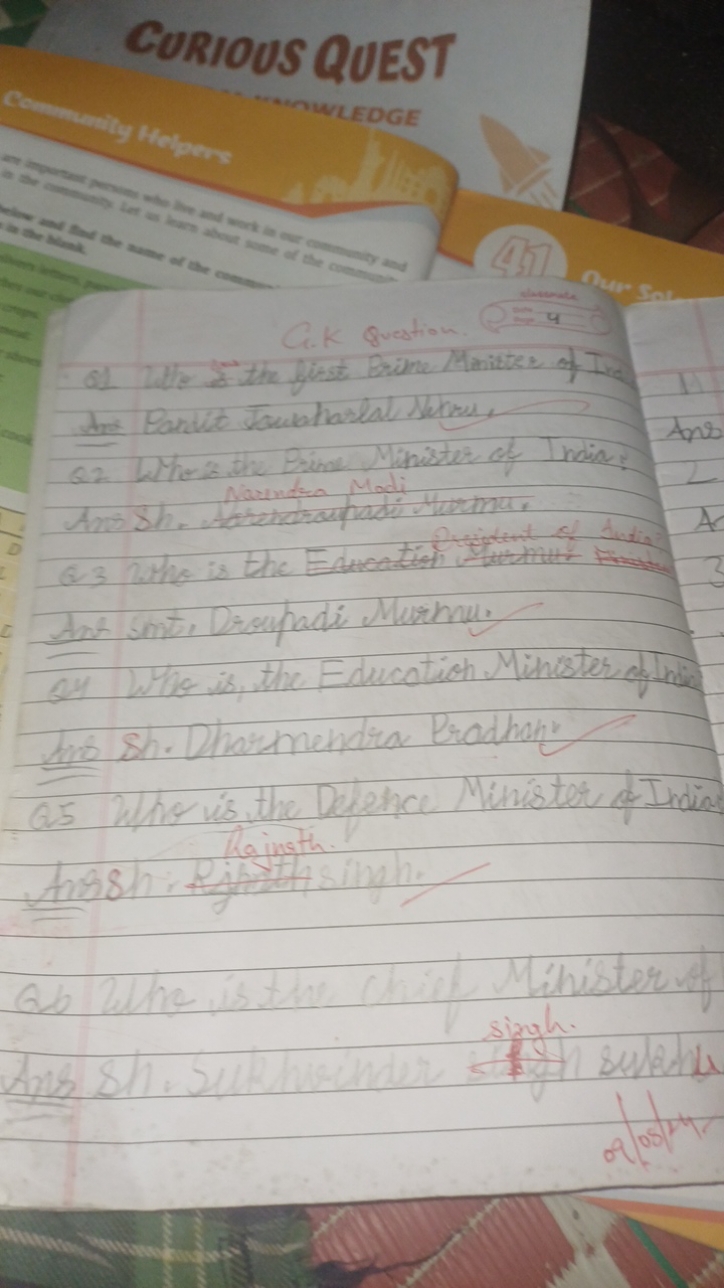 CURIOUS QUEST
KNOWLEDGE
Community Helpers
are important persons who live and work in our community and
in the community. Let us learn about some of the
below and find the name of the
in the blank.
41
Our
classmate
Date
Page 4
G.K Question.
Q1 Who the first Prime Minister of
Ans Pandit Jawaharlal Nehru.
Q2 Who is the Prime Minister of India?
Narendra Modi
Ans Sh. Murmu.
President of India
Q3 Who is the Education Murmu
Ans Smt. Droupadi Murmu.
Q4 Who is, the Education Minister of
Ans Sh. Dharmendra Pradhan.
Q5 Who is the Defence Minister of India
Rajnath.
Ans Sh. singh.
Q6 Who is the Chief Minister of
singh.
Ans Sh. Sukhvinder sukhu
09/08/24.
Ans